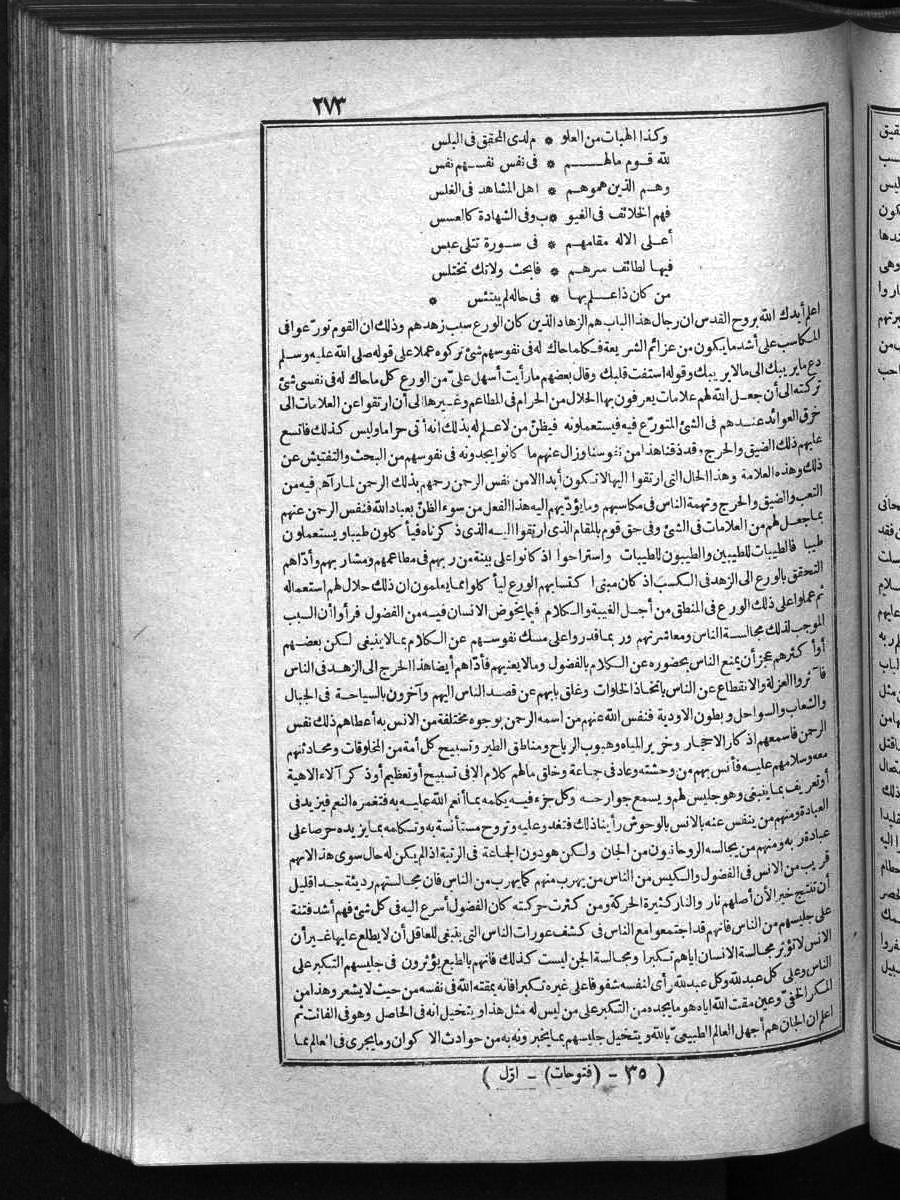 ٢٧٣
وكذا الهبات من العلو * م لدى المحقق فى البلس
لله قوم مالهم * فى نفس نفسهم نفس
وهم الذين همو هم * اهل المشاهد فى الغلس
فهم الخلائف فى الغيو * ب وفى الشهادة كالعسس
أعلى الاله مقامهم * فى سورة تتلى عبس
فيها لطائف سرهم * فابحث ولاتك تختلس
من كان ذا علم بها * فى حاله لم يبتئس *
اعلم أيدك الله بروح القدس ان رجال هذا الباب هم الزهاد الذين كان الورع سبب زهدهم وذلك ان القوم تورّعوا فى
المكاسب على أشد ما يكون من عزائم الشريعة فكلما حاك له فى نفوسهم شئ تركوه عملا على قوله صلى الله عليه وسلم
دع ما يريبك الى مالا يريبك وقوله استفت قلبك وقال بعضهم مارأيت أسهل علىّ من الورع كل ما حاك له فى نفسى شئ
تركته الى أن جعل الله لهم علامات يعرفون بها الحلال من الحرام فى المطاعم وغيرها الى أن ارتقوا عن العلامات الى
خرق العوائد عندهم فى الشئ المتورّع فيه فيستعملونه فيظنّ من لا علم له بذلك انه أتى حراما وليس كذلك فاتسع
عليهم ذلك الضيق والحرج وقد ذقنا هذا من نفوسنا وزال عنهم ما كانوا يجدونه فى نفوسهم من البحث والتفتيش عن
ذلك وهذه العلامة وهذا الحال التى ارتقوا اليها لا تكون أبدا الا من نفس الرحمن رحمهم بذلك الرحمن لما رآهم فيه من
التعب والضيق والحرج وتهمة الناس فى مكاسبهم وما يؤدّيهم اليه هذا الفعل من سوء الظنّ بعباد الله فنفس الرحمن عنهم
بما جعل لهم من العلامات فى الشئ وفى حق قوم بالمقام الذى ارتقوا اليه الذى ذكرناه فيأكلون طيبا ويستعملون
طيبا فالطيبات للطيبين والطيبون للطيبات واستراحوا اذ كانوا على بينة من ربهم فى مطاعمهم ومشاربهم وأدّاهم
التحقق بالورع الى الزهد فى الكسب اذ كان مبنى اكتسابهم الورع ليأكلوا مما يعلمون ان ذلك حلال لهم استعماله
ثم عملوا على ذلك الورع فى المنطق من أجل الغيبة والكلام فيما يخوض الانسان فيه من الفضول فرأوا أن السبب
الموجب لذلك مجالسة الناس ومعاشرتهم وربما قدروا على مسك نفوسهم عن الكلام بما لا ينبغى لكن بعضهم
أو أكثرهم عجز أن يمنع الناس بحضوره عن الكلام بالفضول وما لا يعنيهم فأدّاهم أيضا هذا الحرج الى الزهد فى الناس
فآثروا العزلة والانقطاع عن الناس باتخاذ الخلوات وغلق بابهم عن قصد الناس اليهم وآخرون بالسياحة فى الجبال
والشعاب والسواحل وبطون الاودية فنفس الله عنهم من اسمه الرحمن بوجوه مختلفة من الانس به أعطاهم ذلك نفس
الرحمن فاسمعهم اذكار الاحجار وخرير المياه وهبوب الرياح ومناطق الطير وتسبيح كل أمة من المخلوقات ومحادثتهم
معه وسلامهم عليه فأنس بهم من وحشته وعاد فى جماعة وخلق مالهم كلام الا فى تسبيح أو تعظيم أو ذكر آلاء الاهية
أو تعريف بما ينبغى وهو جليس لهم ويسمع جوارحه وكل جزء فيه يكلمه بما أنعم الله عليه به فتغمره النعم فيزيد فى
العبادة ومنهم من ينفس عنه بالانس بالوحوش رأينا ذلك فتغدو عليه وتروح مستأنسة به وتكلمه بما يزيده حرصا على
عبادة ربه ومنهم من يجالسه الروحانيون من الجان ولكن هو دون الجماعة فى الرتبة اذا لم يكن له حال سوى هذا لانهم
قريب من الانس فى الفضول والكيس من الناس من يهرب منهم كما يهرب من الناس فان مجالستهم رديئة جدا قليل
أن تنتج خيرا لأن أصلهم نار والنار كثيرة الحركة ومن كثرت حركته كان الفضول أسرع اليه فى كل شئ فهم أشد فتنة
على جليسهم من الناس فانهم قد اجتمعوا مع الناس فى كشف عورات الناس التى ينبغى للعاقل أن لا يطلع عليها غير أن
الانس لا تؤثر مجالسة الانسان اياهم تكبرا ومجالسة الجن ليست كذلك فانهم بالطبع يؤثرون فى جليسهم التكبر على
الناس وعلى كل عبد لله وكل عبد لله رأى لنفسه شفوفا على غيره تكبرا فانه يمقته الله فى نفسه من حيث لا يشعر وهذا من
المكر الخفىّ وعين مقت الله اياه هو ما يجده من التكبر على من ليس له مثل هذا ويتخيل انه فى الحاصل وهو فى الفائت ثم
اعلم ان الجان هم أجهل العالم الطبيعىّ بالله ويتخيل جليسهم بما يخبرونه به من حوادث الاكوان وما يجرى فى العالم بما
( ٣٥ - (فتوحات) - اوّل )